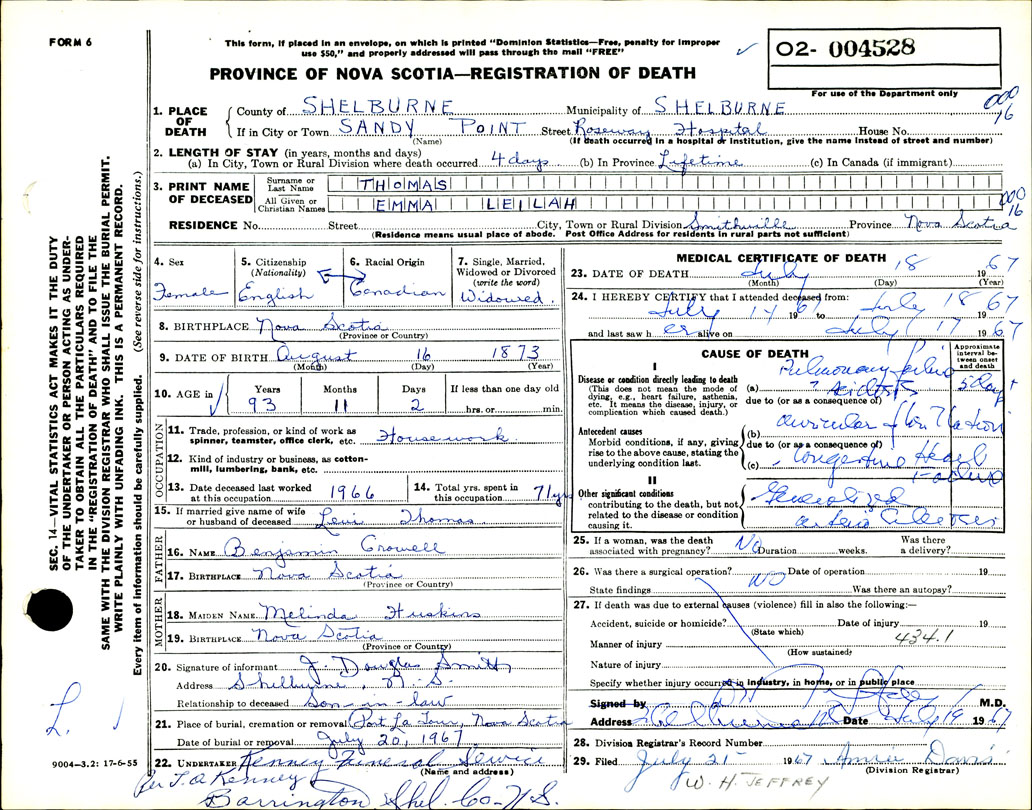 FORM 6
This form, if placed in an envelope, on which is printed "Dominion Statistics—Free, penalty for improper
use $50," and properly addressed will pass through the mail "FREE"
O2- 004528
For use of the Department only
PROVINCE OF NOVA SCOTIA—REGISTRATION OF DEATH
000
16
1. PLACE OF DEATH
County of SHELBURNE Municipality of SHELBURNE
If in City or Town SANDY POINT Street Roseway Hospital House No.
(Name) (If death occurred in a hospital or institution, give the name instead of street and number)
2. LENGTH OF STAY (in years, months and days)
(a) In City, Town or Rural Division where death occurred 4 days (b) In Province Lifetime (c) In Canada (if immigrant)
3. PRINT NAME OF DECEASED
Surname or Last Name THOMAS
All Given or Christian Names EMMA LEILAH
000
16
RESIDENCE No. Street City, Town or Rural Division Smithville Province Nova Scotia
(Residence means usual place of abode. Post Office Address for residents in rural parts not sufficient)
4. Sex
Female
5. Citizenship
(Nationality)
English
6. Racial Origin
Canadian
7. Single, Married, Widowed or Divorced
(write the word)
Widowed.
8. BIRTHPLACE Nova Scotia
(Province or Country)
9. DATE OF BIRTH August 16 1873
(Month) (Day) (Year)
10. AGE in
Years Months Days If less than one day old
93 11 2 hrs. or min.
OCCUPATION
11. Trade, profession, or kind of work as
spinner, teamster, office clerk, etc. Housework.
12. Kind of industry or business, as cotton-
mill, lumbering, bank, etc.
13. Date deceased last worked
at this occupation 1966
14. Total yrs. spent in
this occupation 71 yrs
15. If married give name of wife
or husband of deceased Levi Thomas
FATHER
16. NAME Benjamin Crowell
17. BIRTHPLACE Nova Scotia
(Province or Country)
MOTHER
18. MAIDEN NAME Melinda Huskins
19. BIRTHPLACE Nova Scotia
(Province or Country)
20. Signature of informant J. Douglas Smith
Address Shelburne, N.S.
Relationship to deceased Son-in-law
21. Place of burial, cremation or removal Port La Tour, Nova Scotia
Date of burial or removal July 20, 1967
22. UNDERTAKER Kenney Funeral Service
(Name and address)
Per T.A Kenney
Barrington Shel. Co. N.S.
9004-3.2: 17-6-55
L.
MEDICAL CERTIFICATE OF DEATH
23. DATE OF DEATH July 18 1967
(Month) (Day) (Year)
24. I HEREBY CERTIFY that I attended deceased from:
July 14 1967 to July 18 1967
and last saw h er alive on July 17 1967
CAUSE OF DEATH
Approximate interval between onset and death
I
Disease or condition directly leading to death
(This does not mean the mode of
dying, e.g., heart failure, asthenia,
etc. It means the disease, injury, or
complication which caused death.)
(a) Pulmonary
? Acidosis
5 days
due to (or as a consequence of)
Antecedent causes
Morbid conditions, if any, giving
rise to the above cause, stating the
underlying condition last.
(b) auricular fibrillation
due to (or as a consequence of)
(c) Congestive Heart
Failure
II
Other significant conditions
contributing to the death, but not
related to the disease or condition
causing it.
Generalized
25. If a woman, was the death
associated with pregnancy? NO Duration weeks. Was there
a delivery?
26. Was there a surgical operation? NO Date of operation 19
State findings Was there an autopsy?
27. If death was due to external causes (violence) fill in also the following:—
Accident, suicide or homicide? Date of injury 19
(State which)
Manner of injury 434.1
(How sustained)
Nature of injury
Specify whether injury occurred in industry, in home, or in public place
Signed by M.D.
Address Shelburne NS Date July 19 1967
28. Division Registrar's Record Number
29. Filed July 21 1967 Annie Davis
(Division Registrar)
W. H. JEFFREY
SEC. 14—VITAL STATISTICS ACT MAKES IT THE DUTY
OF THE UNDERTAKER OR PERSON ACTING AS UNDER-
TAKER TO OBTAIN ALL THE PARTICULARS REQUIRED
IN THE "REGISTRATION OF DEATH" AND TO FILE THE
SAME WITH THE DIVISION REGISTRAR WHO SHALL ISSUE THE BURIAL PERMIT.
WRITE PLAINLY WITH UNFADING INK. THIS IS A PERMANENT RECORD.
Every item of information should be carefully supplied. (See reverse side for instructions.)